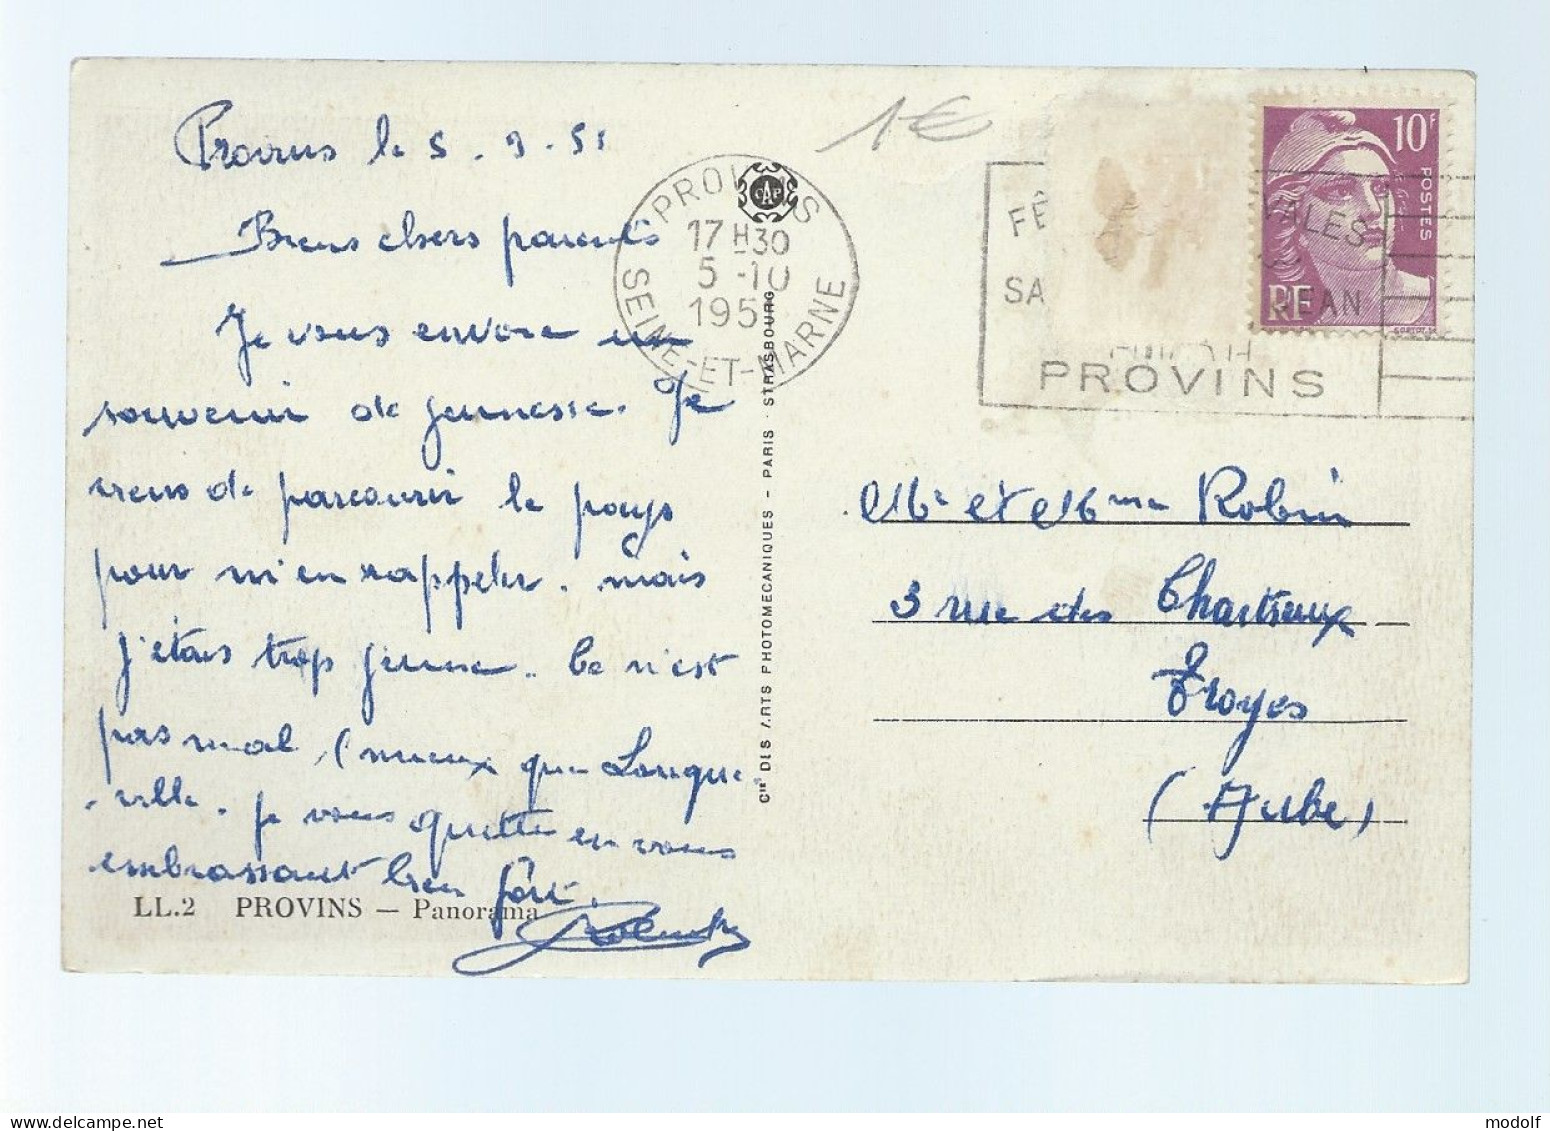 Provins le 5 . 9 . 51
Biens chers parents
Je vous envoie un
souvenir de jeunesse. Je
viens de parcourir le pays
pour m'en rappeler. mais
j'étais trop jeune. Ce n'est
pas mal, (mieux que Longue-
-ville. je vous quitte en vous
embrassant bien fort.
LL.2 PROVINS — Panorama
PROVINS
17 H 30
5 -10
195
SEINE-ET-MARNE
Cie DES ARTS PHOTOMECANIQUES - PARIS - STRASBOURG
CAP
1€
FÊ ALES
SA JEAN
PROVINS
10F
POSTES
RF
GANDON
Mr et Mme Robin
3 rue des Chartreux
Troyes
(Aube)
modolf